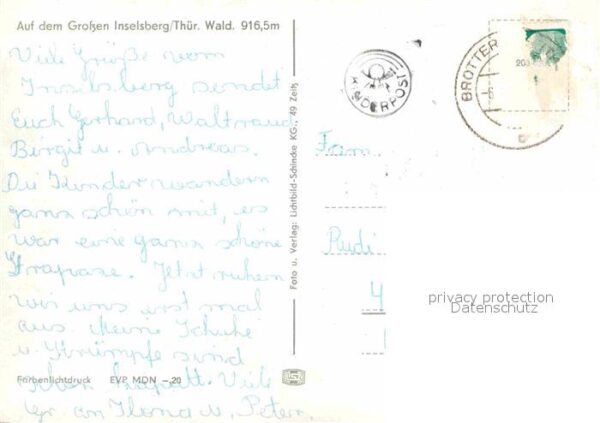 Auf dem Großen Inselsberg/Thür. Wald. 916,5m
Viele Grüße vom
Inselsberg sendet
Euch Gerhard, Waltraud
Birgit u. Andreas.
Die Kinder wandern
ganz schön mit, es
war eine ganz schöne
Strapaze. Jetzt ruhen
wir uns erst mal
aus. Meine Schuhe
u. Strümpfe sind
kaputt. Viele
Gr. an Ilona u. Peter.
Farbenlichtdruck EVP MDN -,20
Foto u. Verlag: Lichtbild-Schincke KG., 49 Zeitz
KINDERPOST
BROTTER
Fam.
Rudi
4
privacy protection
Datenschutz